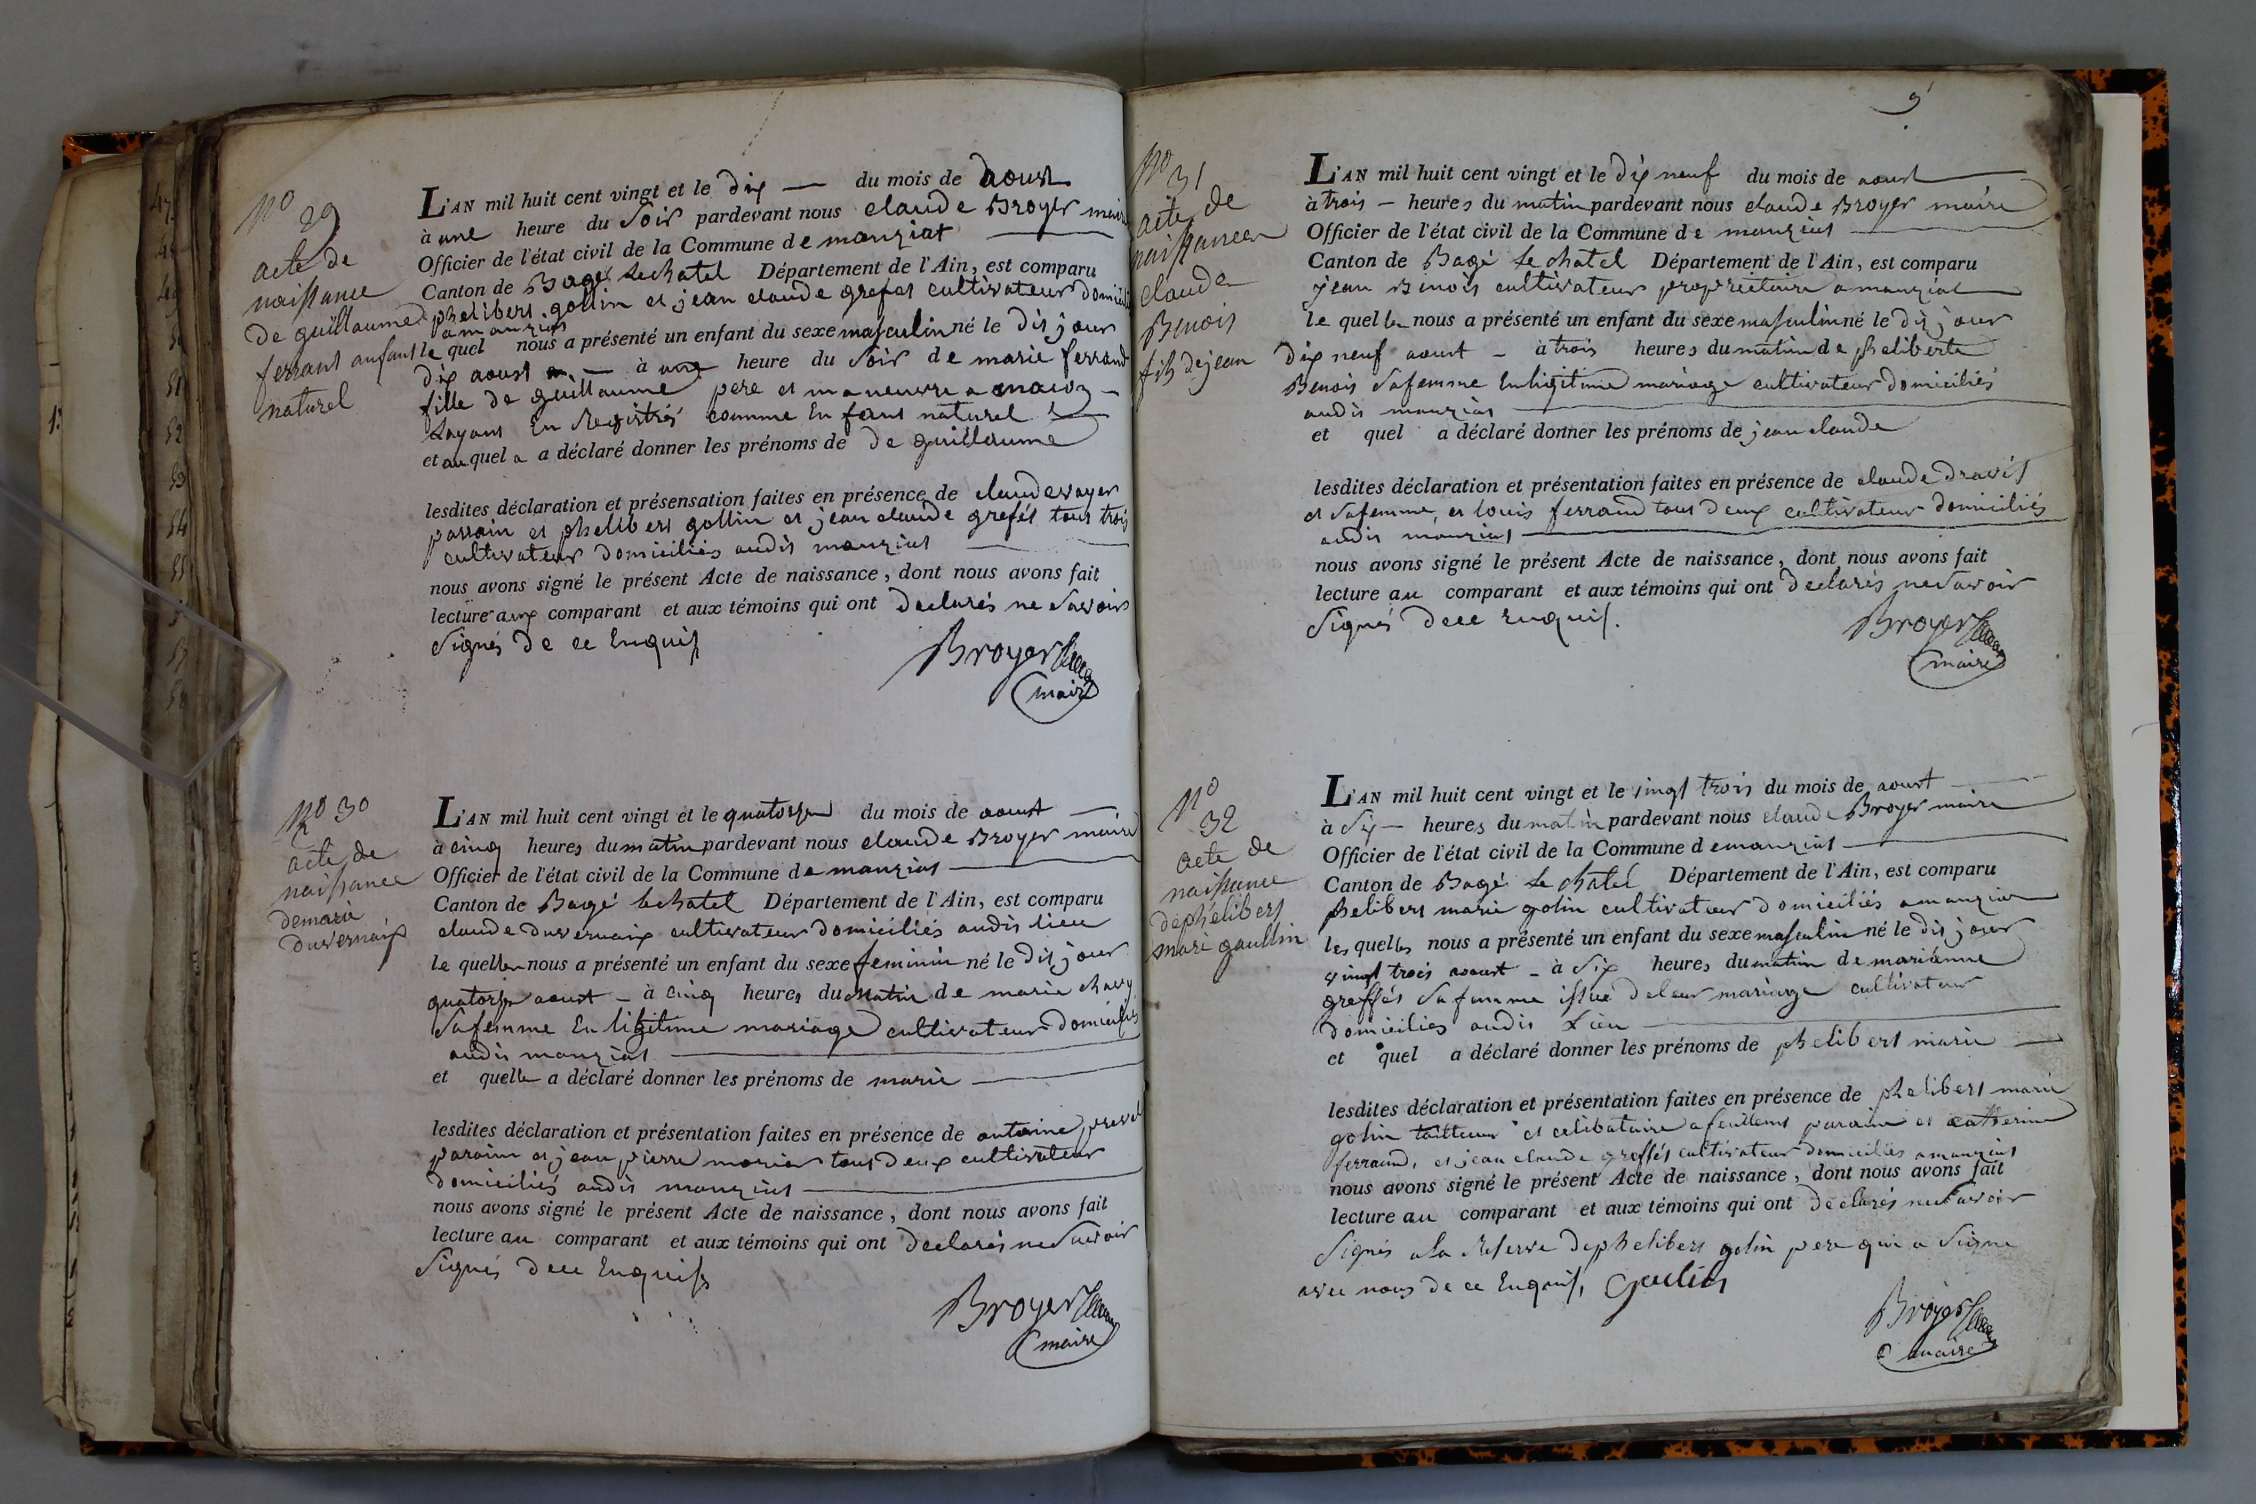 No 29
acte de
naissance
de guillaume
ferrant anfant
naturel
L'AN mil huit cent vingt et le dix du mois de aoust
à une heure du soir pardevant nous claude Broyer maire
Officier de l'état civil de la Commune de manziat
Canton de Bagé le chatel Département de l'Ain, est comparu
phelibert gollin et jean claude grefet cultivateur domicilié
a manziat
le quel nous a présenté un enfant du sexe masculin né le dis jour
dix aoust à une heure du soir de marie ferrand
fille de guillaume pere et maneuvre a macoz
Layant En Registrés comme En fant naturel
et au quel a a déclaré donner les prénoms de de guillaume
lesdites déclaration et présensation faites en présence de claude voyer
parrain et phelibert gollin et jean claude grefés tous trois
cultivateur domiciliés audit manziat
nous avons signé le présent Acte de naissance, dont nous avons fait
lecture aux comparant et aux témoins qui ont declarés ne savoir
signés de ce Enquis
Broyer
maire
No 30
acte de
naissance
de marie
duvernaix
L'AN mil huit cent vingt et le quatorze du mois de aoust
à cinq heures du matin pardevant nous claude Broyer maire
Officier de l'état civil de la Commune de manziat
Canton de Bagé le chatel Département de l'Ain, est comparu
claude duvernaix cultivateur domiciliés audit lieu
le quel nous a présenté un enfant du sexe feminin né le dis jour
quatorze aoust à cinq heures du matin de marie chavy
sa femme En ligitime mariage cultivateur domiciliés
audit manziat
et quelle a déclaré donner les prénoms de marie
lesdites déclaration et présentation faites en présence de antoine prevel
parain et jean pierre morier tous deux cultivateur
domiciliés audit manziat
nous avons signé le présent Acte de naissance, dont nous avons fait
lecture au comparant et aux témoins qui ont declarés ne savoir
signés de ce Enquis
Broyer
maire
9
No 31
acte de
naissance
claude
Benois
fils de jean
L'AN mil huit cent vingt et le dix neuf du mois de aoust
à trois heures du matin pardevant nous claude Broyer maire
Officier de l'état civil de la Commune de manziat
Canton de Bagé le chatel Département de l'Ain, est comparu
jean Benois cultivateur proprietaire a manziat
le quel nous a présenté un enfant du sexe masculin né le dis jour
dix neuf aoust à trois heures du matin de pheliberte
Benois sa femme En ligitime mariage cultivateur domiciliés
audit manziat
et quel a déclaré donner les prénoms de jean claude
lesdites déclaration et présentation faites en présence de claude dravis
et sa femme, et louis ferrand tous deux cultivateur domiciliés
audit manziat
nous avons signé le présent Acte de naissance, dont nous avons fait
lecture au comparant et aux témoins qui ont declarés ne savoir
signés de ce Enquis.
Broyer
maire
No
32
acte de
naissance
de phelibert
mari gaullin
L'AN mil huit cent vingt et le vingt trois du mois de aoust
à six heures du matin pardevant nous claude Broyer maire
Officier de l'état civil de la Commune de manziat
Canton de Bagé le chatel Département de l'Ain, est comparu
phelibert marie golin cultivateur domiciliés a manziat
les quells nous a présenté un enfant du sexe masculin né le dis jour
vingt trois aoust à six heures du matin de marianne
greffés sa femme issue de leur mariage cultivateur
domicilies audit Lieu
et quel a déclaré donner les prénoms de phelibert marie
lesdites déclaration et présentation faites en présence de phelibert marie
golin tailleur et celibataire a feillens parain et catherine
ferrand, et jean claude greffés cultivateur domiciliés a manziat
nous avons signé le présent Acte de naissance, dont nous avons fait
lecture au comparant et aux témoins qui ont declarés ne savoir
signés a la Reserve de phelibert golin pere qui a signe
avec nous de ce Enquis, Goulin
Broyer
maire